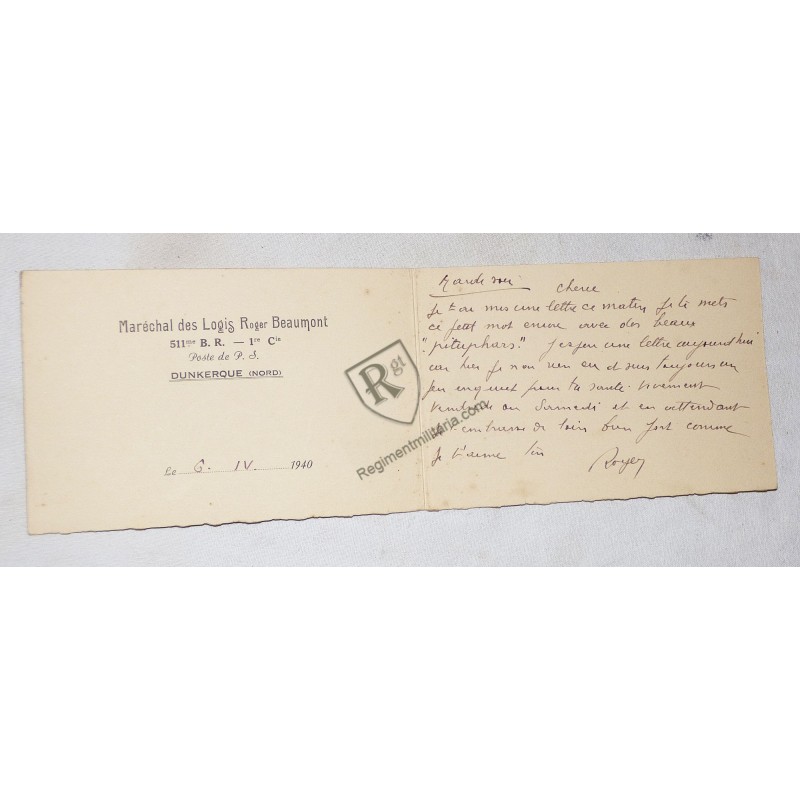 Maréchal des Logis Roger Beaumont
511me B. R. — 1re Cie
Poste de P. S.
DUNKERQUE (NORD)
Le 6. IV. 1940
Mardi soir cherie
je t'ai mis une lettre ce matin je te mets
ce petit mot encore avec des beaux
une lettre aujourd'hui
car hier je non rien eu et suis toujours un
peu inquiet pour ta santé. vivement
Vendredi ou Samedi et en attendant
t'embrasse de loin bien fort comme
je t'aime ton Roger
Rgt
Regimentmilitaria.com